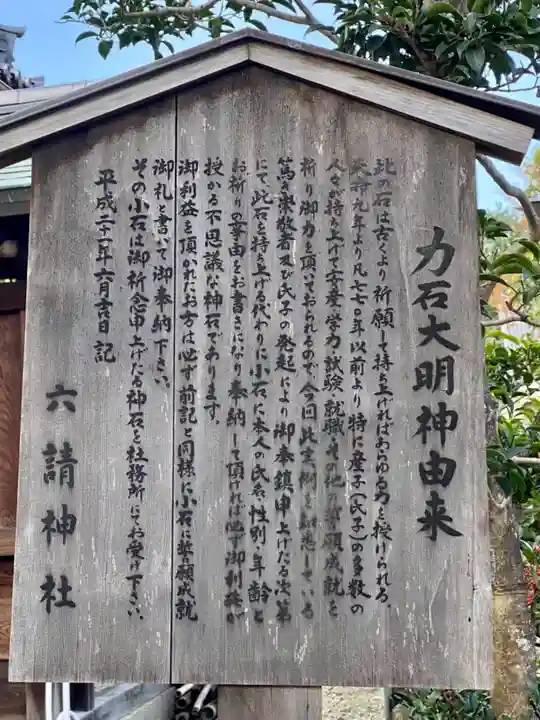 力石大明神由来
此の石は古くより祈願して持ち上げればあらゆる力を授けられる。
天福九年より凡七七〇年以前より特に産子(氏子)の多数の
人々が持ち上げて安産、学力、試験、就職、その他の誓願成就を
祈り御力を頂いておられるので、今回此実例を知悉している
篤き崇敬者及び氏子の発起により御奉鎮申上げたる次第
にて、此石を持ち上げる代わりに小石に本人の氏名、性別、年齢と
お祈りの事由をお書きになり奉納して頂ければ必ず御利益が
授かる不思議な神石であります。
御利益を頂かれたお方は必ず前記と同様に小石に誓願成就
御礼と書いて御奉納下さい。
その小石は御祈念申上げたる神石を社務所にてお受け下さい。
平成二十一年六月吉日記
六請神社